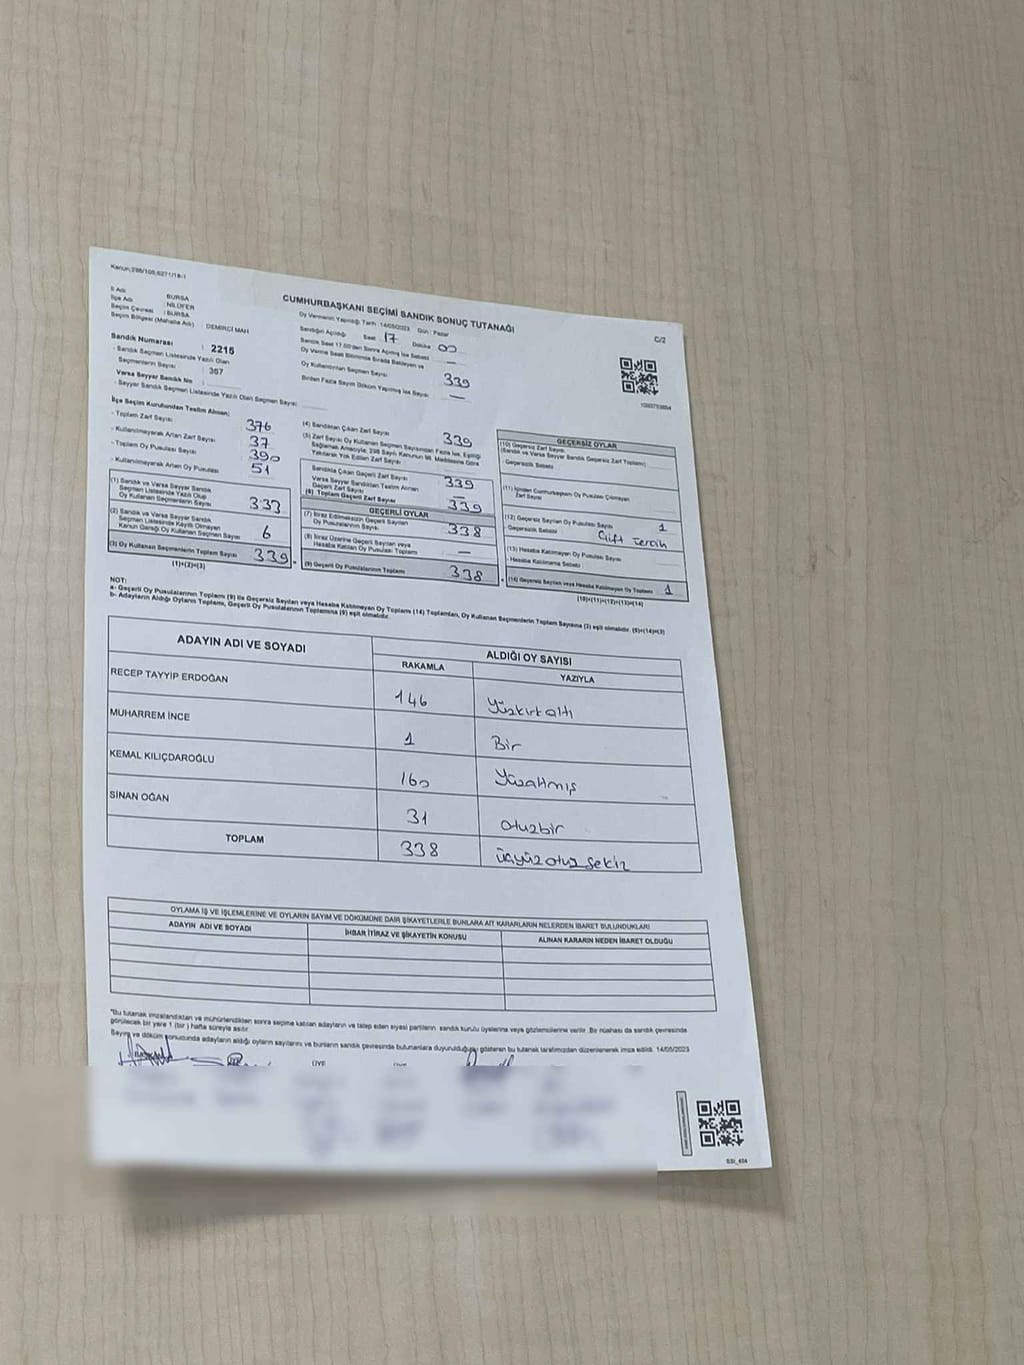 Kanun:298/105,6271/18-1
CUMHURBAŞKANI SEÇİMİ SANDIK SONUÇ TUTANAĞI
C/2
İl Adı : BURSA
İlçe Adı : NİLÜFER
Seçim Çevresi : BURSA
Seçim Bölgesi (Mahalle Adı) : DEMİRCİ MAH
Sandık Numarası : 2215
- Sandık Seçmen Listesinde Yazılı Olan
Seçmenlerin Sayısı : 367
Varsa Seyyar Sandık No :
- Seyyar Sandık Seçmen Listesinde Yazılı Olan Seçmen Sayısı :
Oy Vermenin Yapıldığı Tarih : 14/05/2023 Gün : Pazar
Sandığın Açıldığı: Saat 17 Dakika 00
Sandık Saat 17.00'den Sonra Açılmış İse Sebebi —
Oy Verme Saati Bitiminde Sırada Bekleyen ve
Oy Kullandırılan Seçmen Sayısı: 339
Birden Fazla Sayım Döküm Yapılmış İse Sayısı: —
İlçe Seçim Kurulundan Teslim Alınan;
- Toplam Zarf Sayısı: 376
- Kullanılmayarak Artan Zarf Sayısı: 37
- Toplam Oy Pusulası Sayısı: 390
- Kullanılmayarak Artan Oy Pusulası: 51
(1) Sandık ve Varsa Seyyar Sandık
Seçmen Listesinde Yazılı Olup
Oy Kullanan Seçmenlerin Sayısı 333
(2) Sandık ve Varsa Seyyar Sandık
Seçmen Listesinde Kayıtlı Olmayan
Kanun Gereği Oy Kullanan Seçmen Sayısı 6
(3) Oy Kullanan Seçmenlerin Toplam Sayısı 339
(1)+(2)=(3)
(4) Sandıktan Çıkan Zarf Sayısı 339
(5) Zarf Sayısı Oy Kullanan Seçmen Sayısından Fazla İse, Eşitliği
Sağlamak Amacıyla, 298 Sayılı Kanunun 98. Maddesine Göre
Yakılarak Yok Edilen Zarf Sayısı
Sandıkta Çıkan Geçerli Zarf Sayısı 339
Varsa Seyyar Sandıktan Teslim Alınan
Geçerli Zarf Sayısı —
(6) Toplam Geçerli Zarf Sayısı 339
GEÇERLİ OYLAR
(7) İtiraz Edilmeksizin Geçerli Sayılan
Oy Pusulalarının Sayısı 338
(8) İtiraz Üzerine Geçerli Sayılan veya
Hesaba Katılan Oy Pusulası Toplamı —
(9) Geçerli Oy Pusulalarının Toplamı 338
GEÇERSİZ OYLAR
(10) Geçersiz Zarf Sayısı
(Sandık ve Varsa Seyyar Sandık Geçersiz Zarf Toplamı)
- Geçersizlik Sebebi
(11) İçinden Cumhurbaşkanı Oy Pusulası Çıkmayan
Zarf Sayısı
(12) Geçersiz Sayılan Oy Pusulası Sayısı 1
- Geçersizlik Sebebi Çift Tercih
(13) Hesaba Katılmayan Oy Pusulası Sayısı
- Hesaba Katılmama Sebebi
(14) Geçersiz Sayılan veya Hesaba Katılmayan Oy Toplamı 1
(10)+(11)+(12)+(13)=(14)
NOT:
a- Geçerli Oy Pusulalarının Toplamı (9) ile Geçersiz Sayılan veya Hesaba Katılmayan Oy Toplamı (14) Toplamları, Oy Kullanan Seçmenlerin Toplam Sayısına (3) eşit olmalıdır. (9)+(14)=(3)
b- Adayların Aldığı Oyların Toplamı, Geçerli Oy Pusulalarının Toplamına (9) eşit olmalıdır.
ADAYIN ADI VE SOYADI
ALDIĞI OY SAYISI
RAKAMLA YAZIYLA
RECEP TAYYİP ERDOĞAN 146 Yüzkırkaltı
MUHARREM İNCE 1 Bir
KEMAL KILIÇDAROĞLU 160 Yüzaltmış
SİNAN OĞAN 31 otuzbir
TOPLAM 338 üçyüzotuzsekiz
OYLAMA İŞ VE İŞLEMLERİNE VE OYLARIN SAYIM VE DÖKÜMÜNE DAİR ŞİKAYETLERLE BUNLARA AİT KARARLARIN NELERDEN İBARET BULUNDUKLARI
ADAYIN ADI VE SOYADI İHBAR İTİRAZ VE ŞİKAYETİN KONUSU ALINAN KARARIN NEDEN İBARET OLDUĞU
*Bu tutanak imzalandıktan ve mühürlendikten sonra seçime katılan adayların ve talep eden siyasi partilerin, sandık kurulu üyelerine veya gözlemcilerine verilir. Bir nüshası da sandık çevresinde
görülecek bir yere 1 (bir) hafta süreyle asılır.
Sayım ve döküm sonucunda adayların aldığı oyların sayılarını ve bunların sandık çevresinde bulunanlara duyurulduğunu gösteren bu tutanak tarafımızdan düzenlenerek imza edildi. 14/05/2023
ÜYE